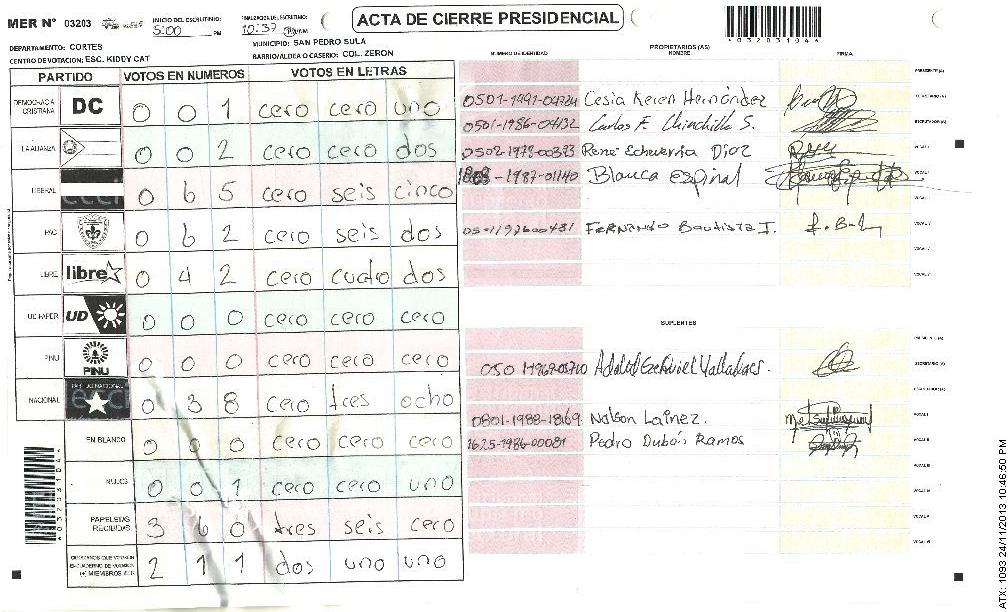 MER N° 03203
INICIO DEL ESCRUTINIO:
5:00 PM
FINALIZACION DEL ESCRUTINIO:
10:37
ACTA DE CIERRE PRESIDENCIAL
*03203104*
DEPARTAMENTO: CORTES
MUNICIPIO: SAN PEDRO SULA
CENTRO DE VOTACION: ESC. KIDDY CAT
BARRIO/ALDEA O CASERIO: COL. ZERON
PARTIDO VOTOS EN NUMEROS VOTOS EN LETRAS
DEMOCRACIA CRISTIANA DC 0 0 1 cero cero uno
LA ALIANZA 0 0 2 cero cero dos
LIBERAL 0 6 5 cero seis cinco
PAC 0 6 2 cero seis dos
LIBRE libre 0 4 2 cero cuatro dos
UD-FAPER UD 0 0 0 cero cero cero
PINU PINU 0 0 0 cero cero cero
NACIONAL PARTIDO NACIONAL 0 3 8 cero tres ocho
EN BLANCO 0 0 0 cero cero cero
NULOS 0 0 1 cero cero uno
PAPELETAS RECIBIDAS 3 6 0 tres seis cero
CIUDADANOS QUE VOTARON
2 1 1 dos uno uno
PROPIETARIOS (AS)
NUMERO DE IDENTIDAD NOMBRE FIRMA
PRESIDENTE (A)
0501-1991-04724 Cesia Keren Hernández SECRETARIO (A)
0501-1986-04132 Carlos F. Chinchilla S. ESCRUTADOR (A)
0502-1978-00393 René Echeverria Díaz VOCAL I
-1987-01140 Blanca Espinal
Fernando Bautista I. f. Bau
SUPLENTES
PRESIDENTE (A)
Adolf Ezequiel Valladares. SECRETARIO (A)
ESCRUTADOR (A)
0801-1988-18169 Nelson Laínez. VOCAL I
1625-1986-00081 Pedro Dubón Ramos VOCAL II
VOCAL III
*03203104*
ATX: 1093 24/11/2013 10:46:50 PM